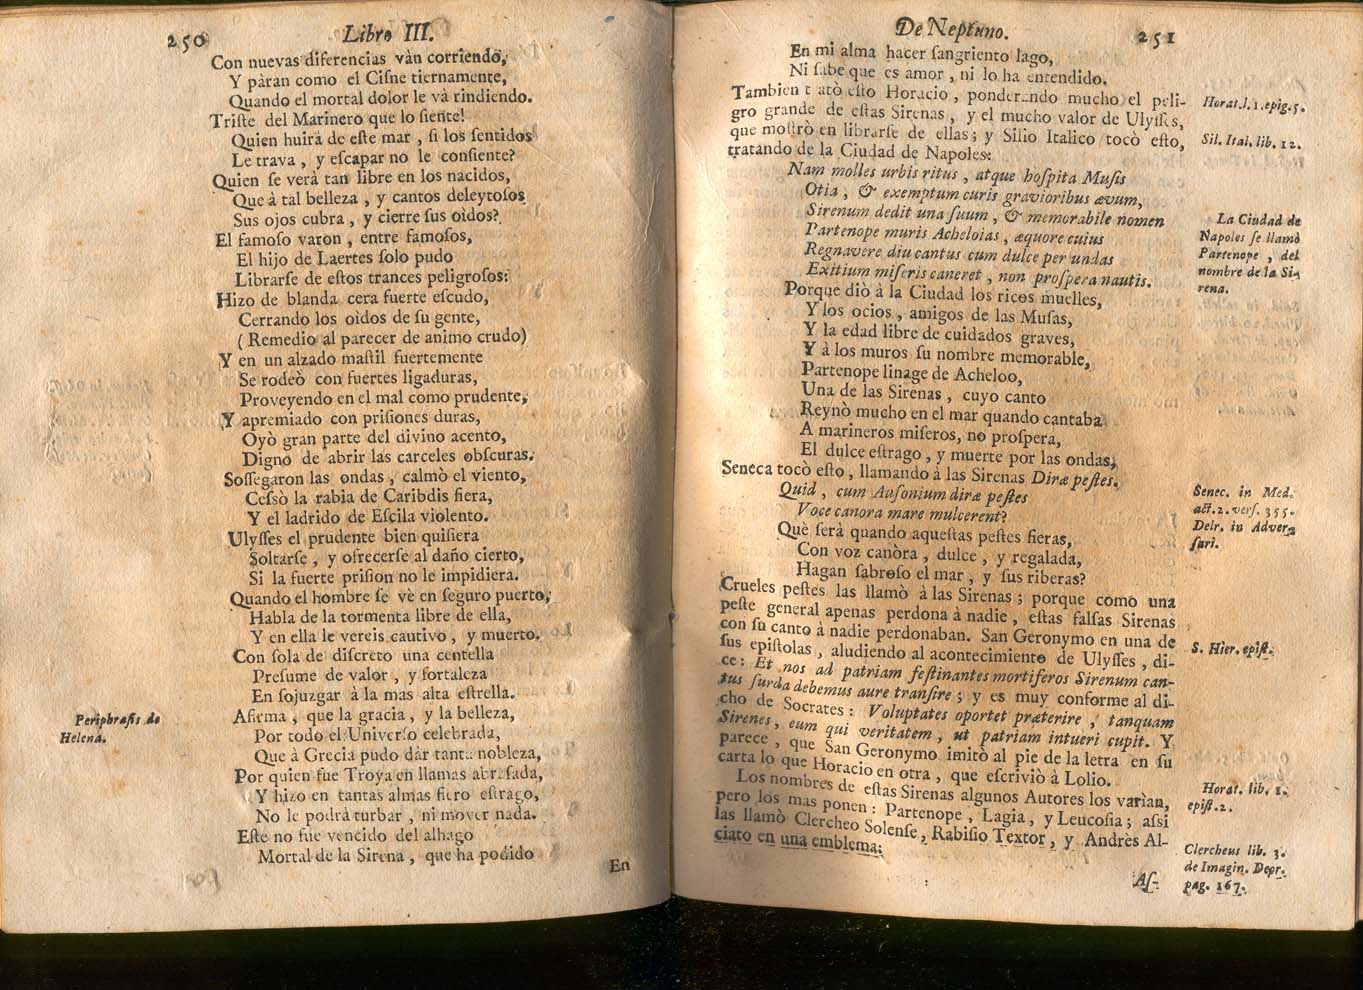 250 Libro III.
Con nuevas diferencias vàn corriendo,
Y pàran como el Cisne tiernamente,
Quando el mortal dolor le và rindiendo.
Triste del Marinero que lo siente!
Quien huirà de este mar, si los sentidos
Le trava, y escapar no le consiente?
Quien se verà tan libre en los nacidos,
Que à tal belleza, y cantos deleytosos
Sus ojos cubra, y cierre sus oìdos?
El famoso varon, entre famosos,
El hijo de Laertes solo pudo
Librarse de estos trances peligrosos:
Hizo de blanda cera fuerte escudo,
Cerrando los oìdos de su gente,
(Remedio al parecer de animo crudo)
Y en un alzado mastil fuertemente
Se rodeò con fuertes ligaduras,
Proveyendo en el mal como prudente,
Y apremiado con prisiones duras,
Oyò gran parte del divino acento,
Digno de abrir las carceles obscuras.
Sossegaron las ondas, calmò el viento,
Cessò la rabia de Caribdis fiera,
Y el ladrido de Escila violento.
Ulysses el prudente bien quisiera
Soltarse, y ofrecerse al daño cierto,
Si la fuerte prision no le impidiera.
Quando el hombre se vè en seguro puerto,
Habla de la tormenta libre de ella,
Y en ella le vereis cautivo, y muerto.
Con sola de discreto una centella
Presume de valor, y fortaleza
En sojuzgar à la mas alta estrella.
Periphrasis de
Helena.
Afirma, que la gracia, y la belleza,
Por todo el Universo celebrada,
Que à Grecia pudo dàr tanta nobleza,
Por quien fue Troya en llamas abrasada,
Y hizo en tantas almas fiero estrago,
No le podrà turbar, ni mover nada.
Este no fue vencido del alhago
Mortal de la Sirena, que ha podido
En
De Neptuno. 251
En mi alma hacer sangriento lago,
Ni sabe que es amor, ni lo ha entendido.
Tambien tratò esto Horacio, ponderando mucho el peli-
gro grande de estas Sirenas, y el mucho valor de Ulysses,
que mostrò en librarse de ellas; y Silio Italico tocò esto,
tratando de la Ciudad de Napoles:
Horat. l. 1. epig. 5.
Sil. Ital. lib. 12.
Nam molles urbis ritus, atque hospita Musis
Otia, & exemptum curis gravioribus ævum,
Sirenum dedit una suum, & memorabile nomen
Partenope muris Acheloias, æquore cuius
Regnavere diu cantus cum dulce per undas
Exitium miseris caneret, non prospera nautis.
La Ciudad de
Napoles se llamò
Partenope, del
nombre de la Si-
rena.
Porque diò à la Ciudad los ricos muelles,
Y los ocios, amigos de las Musas,
Y la edad libre de cuidados graves,
Y à los muros su nombre memorable,
Partenope linage de Acheloo,
Una de las Sirenas, cuyo canto
Reynò mucho en el mar quando cantaba
A marineros miseros, no prospera,
El dulce estrago, y muerte por las ondas,
Seneca tocò esto, llamando à las Sirenas Diræ pestes.
Quid, cum Ausonium diræ pestes
Voce canora mare mulcerent?
Senec. in Med.
act. 2. vers. 355.
Delr. in Adver-
sari.
Què serà quando aquestas pestes fieras,
Con voz canòra, dulce, y regalada,
Hagan sabroso el mar, y sus riberas?
Crueles pestes las llamò à las Sirenas; porque como una
peste general apenas perdona à nadie, estas falsas Sirenas
con su canto à nadie perdonaban. San Geronymo en una de
sus epistolas, aludiendo al acontecimiento de Ulysses, di-
ce: Et nos ad patriam festinantes mortiferos Sirenum can-
tus surda debemus aure transire; y es muy conforme al di-
cho de Socrates: Voluptates oportet præterire, tanquam
Sirenes, eum qui veritatem, ut patriam intueri cupit. Y
parece, que San Geronymo imitò al pie de la letra en su
carta lo que Horacio en otra, que escriviò à Lolio.
S. Hier. epist.
Horat. lib. 1.
epist. 2.
Los nombres de estas Sirenas algunos Autores los varìan,
pero los mas ponen: Partenope, Lagia, y Leucosia; assi
las llamò Clercheo Solense, Rabisio Textor, y Andrès Al-
ciato en una emblema:
Clercheus lib. 3.
de Imagin. Depr.
pag. 167.
As-